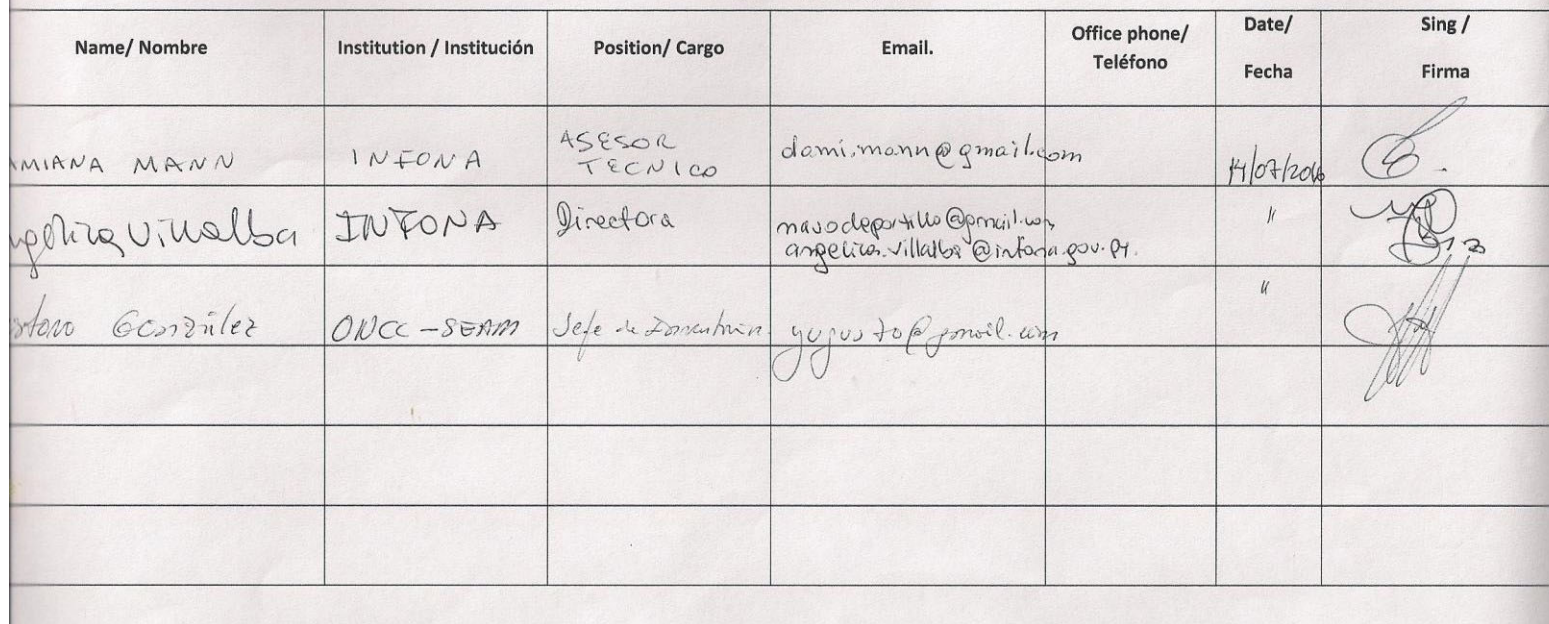 Name/ Nombre
Institution / Institución
Position/ Cargo
Email.
Office phone/
Teléfono
Date/
Fecha
Sing /
Firma
AMIANA MANN
INFONA
ASESOR
TECNICO
dami.mann@gmail.com
14/07/2016
ngelica Villalba
INFONA
Directora
angelica.villalba@infona.gov.py.
"
stavo González
ONCC-SEAM
Jefe de
yugusto@gmail.com
"